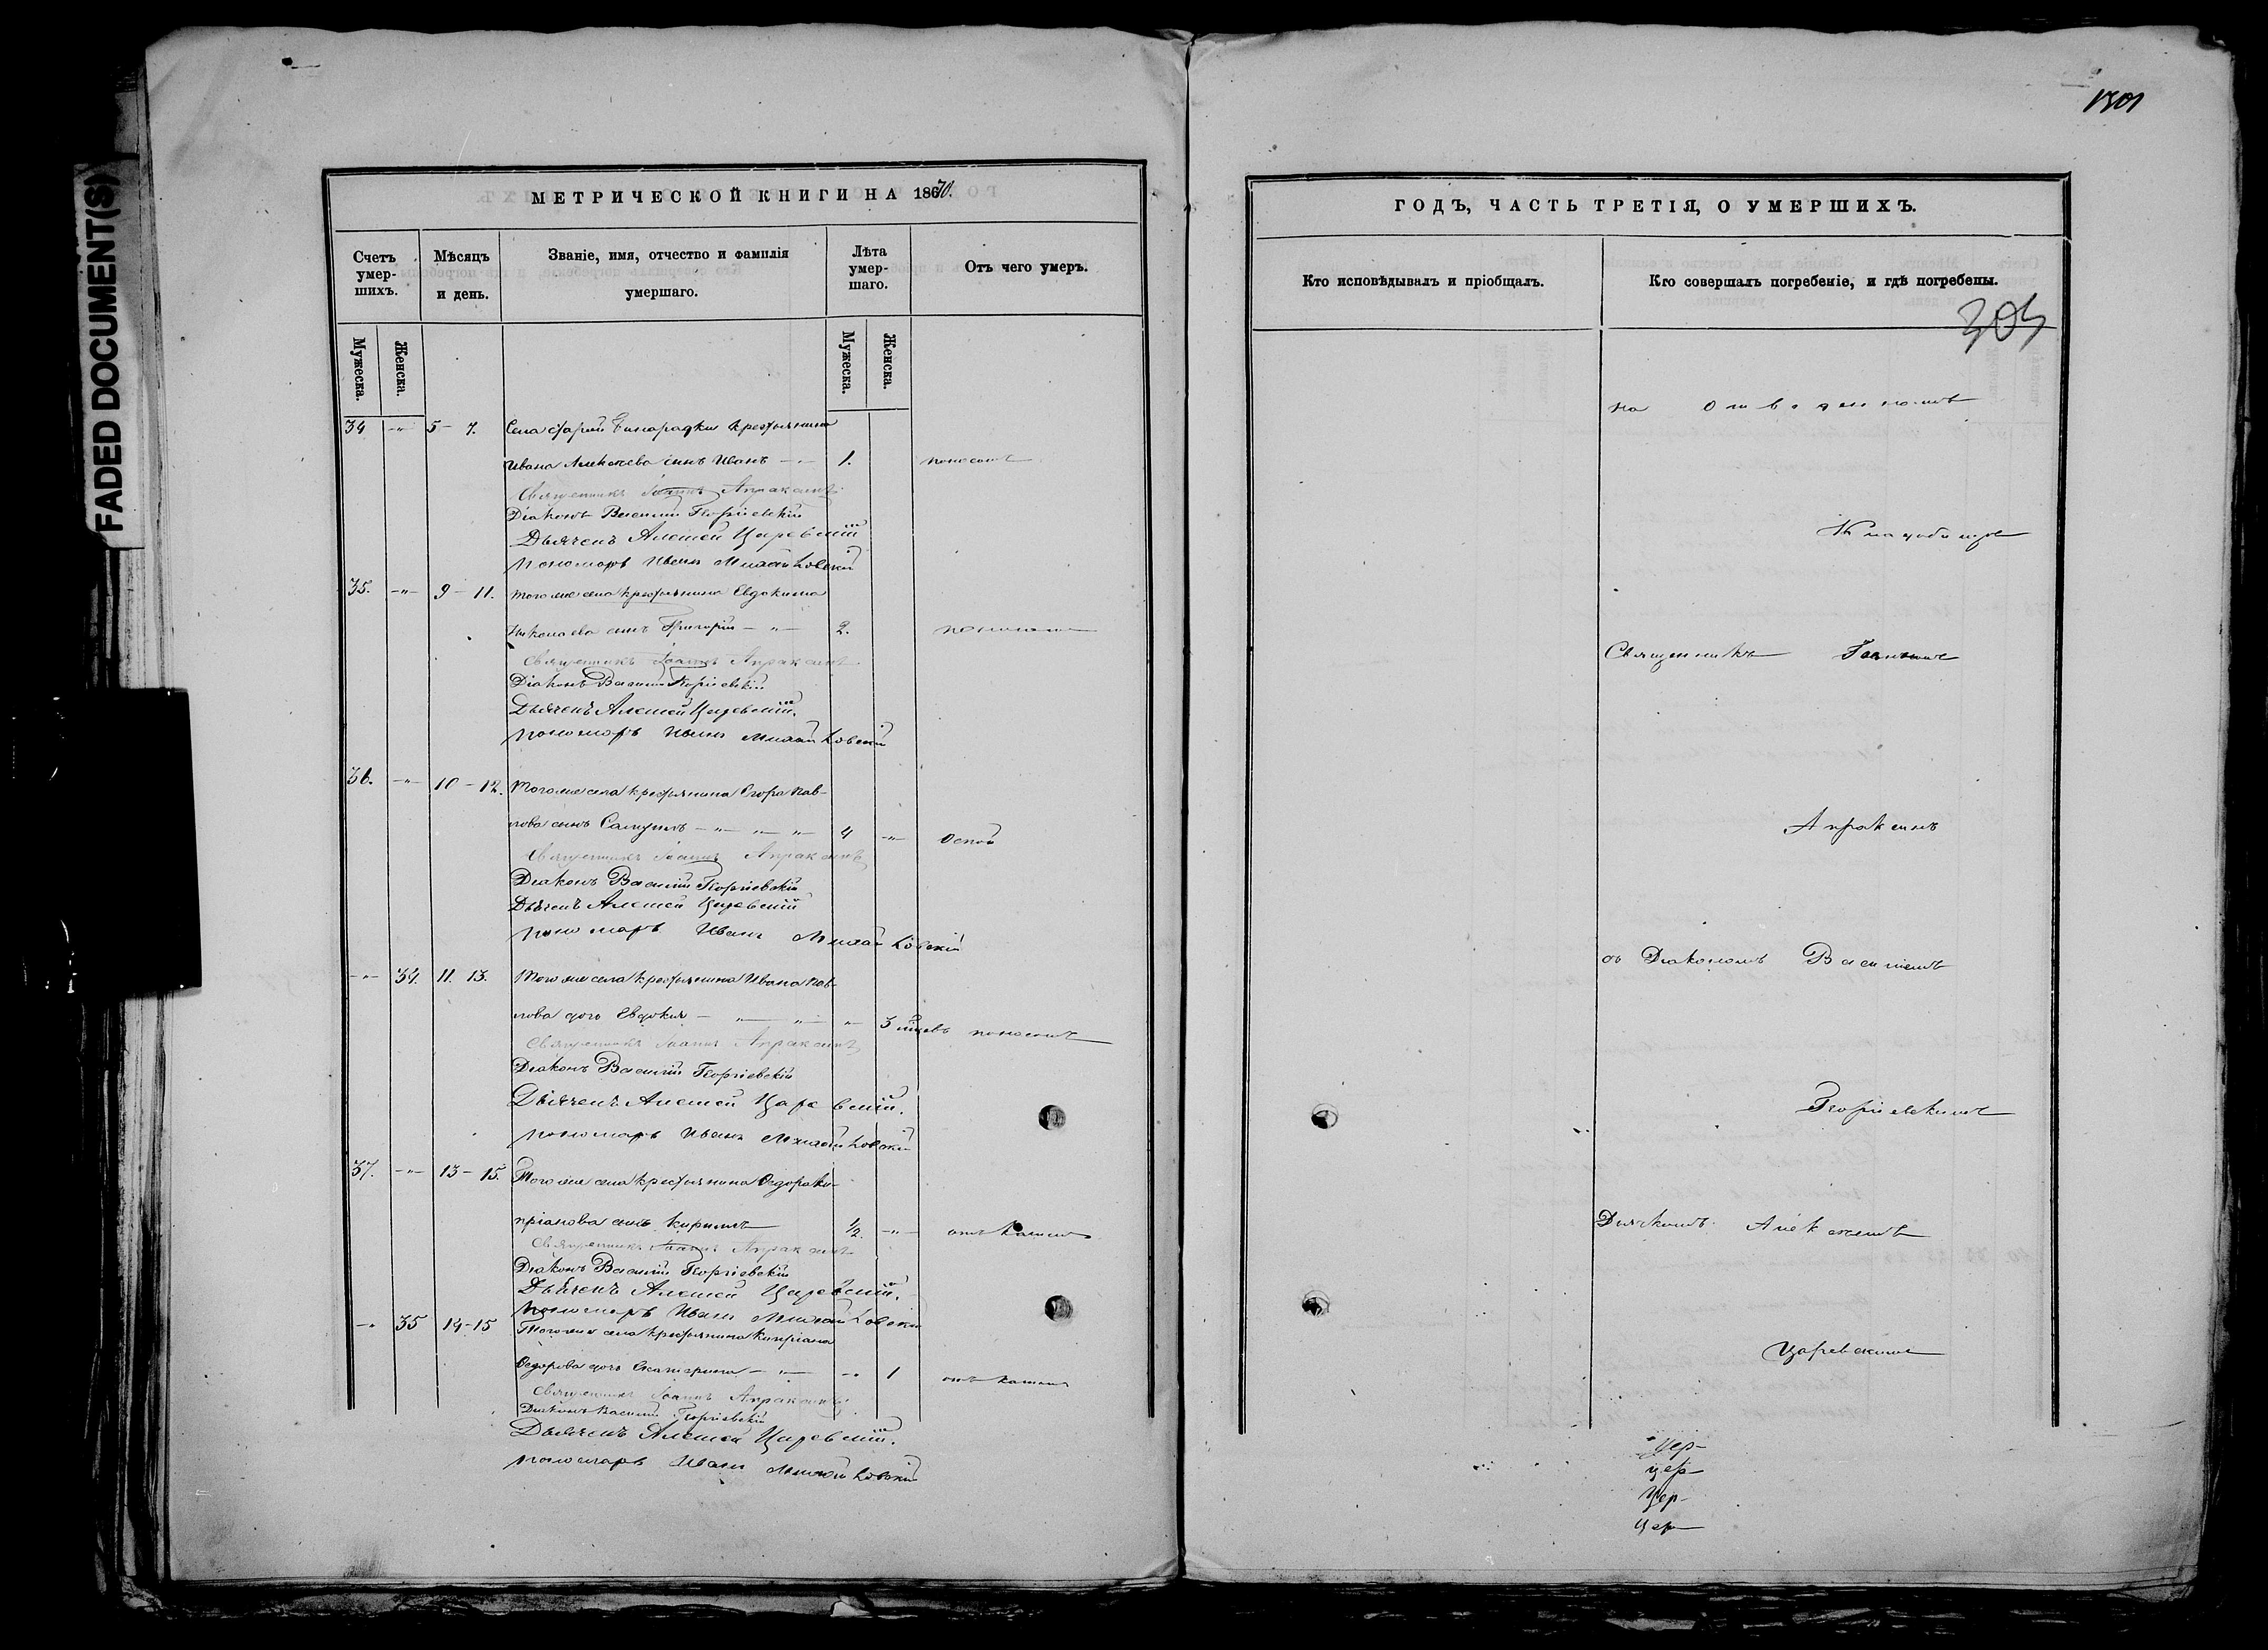 FADED DOCUMENT(S)
1301
МЕТРИЧЕСКОЙ КНИГИ НА 1870.
Счетъ умер-шихъ.
Мѣсяцъ и день.
Званіе, имя, отчество и фамилія умершаго.
Лѣта умер-шаго.
Отъ чего умеръ.
Мужеска.
Женска.
Мужеска.
Женска.
34 -"- 5 - 7. Села старой Бинарадки крестьянина
Ивана Алексѣева сынъ Иванъ - - 1. поносомъ
Священникъ Іоаннъ Апраксинъ
Діаконъ Василій Георгіевскій
Дьячекъ Алексей Царевскій
Пономарь Иванъ Михайловскій
35. -"- 9 - 11. Того же села крестьянина Евдокима
Николаева сынъ Григорій - " - 2. поносомъ
Священникъ Іоаннъ Апраксинъ
Діаконъ Василій Георгіевскій
Дьячекъ Алексей Царевскій.
Пономарь Иванъ Михайловскій
36. -"- 10 - 12. Того же села крестьянина Егора Пав-
лова сынъ Самуилъ - " - " - " 4 -"- Оспой
Священникъ Іоаннъ Апраксинъ
Діаконъ Василій Георгіевскій
Дьячекъ Алексей Царевскій
Пономарь Иванъ Михайловскій
-"- 34. 11. 13. Того же села крестьянина Ивана Пав-
лова дочь Евдокия - " - " - " - 3 мцевъ поносомъ
Священникъ Іоаннъ Апраксинъ
Діаконъ Василій Георгіевскій
Дьячекъ Алексей Царевскій.
Пономарь Иванъ Михайловскій
37. -"- 13 - 15. Того же села крестьянина Федора Ки-
пріанова сынъ Кирилъ 1/2. -"- отъ кашля
Священникъ Іоаннъ Апраксинъ
Діаконъ Василій Георгіевскій
Дьячекъ Алексей Царевскій.
Пономарь Иванъ Михайловскій
-" 35 14-15 Того же села крестьянина Кипріана
Федорова дочь Екатерина - " - -" 1 отъ кашля
Священникъ Іоаннъ Апраксинъ
Діаконъ Василій Георгіевскій
Дьячекъ Алексей Царевскій.
Пономарь Иванъ Михайловскій
ГОДЪ, ЧАСТЬ ТРЕТІЯ, О УМЕРШИХЪ.
Кто исповѣдывалъ и пріобщалъ.
Кто совершалъ погребеніе, и гдѣ погребены.
305
На Отведенномъ
Кладбище
Священникъ Іоаннъ
Апраксинъ
съ Діакономъ Василіемъ
Георгіевскимъ
Дьячкомъ Алексеемъ
Царевскимъ
Цер-
цер-
Цер-
Цер-